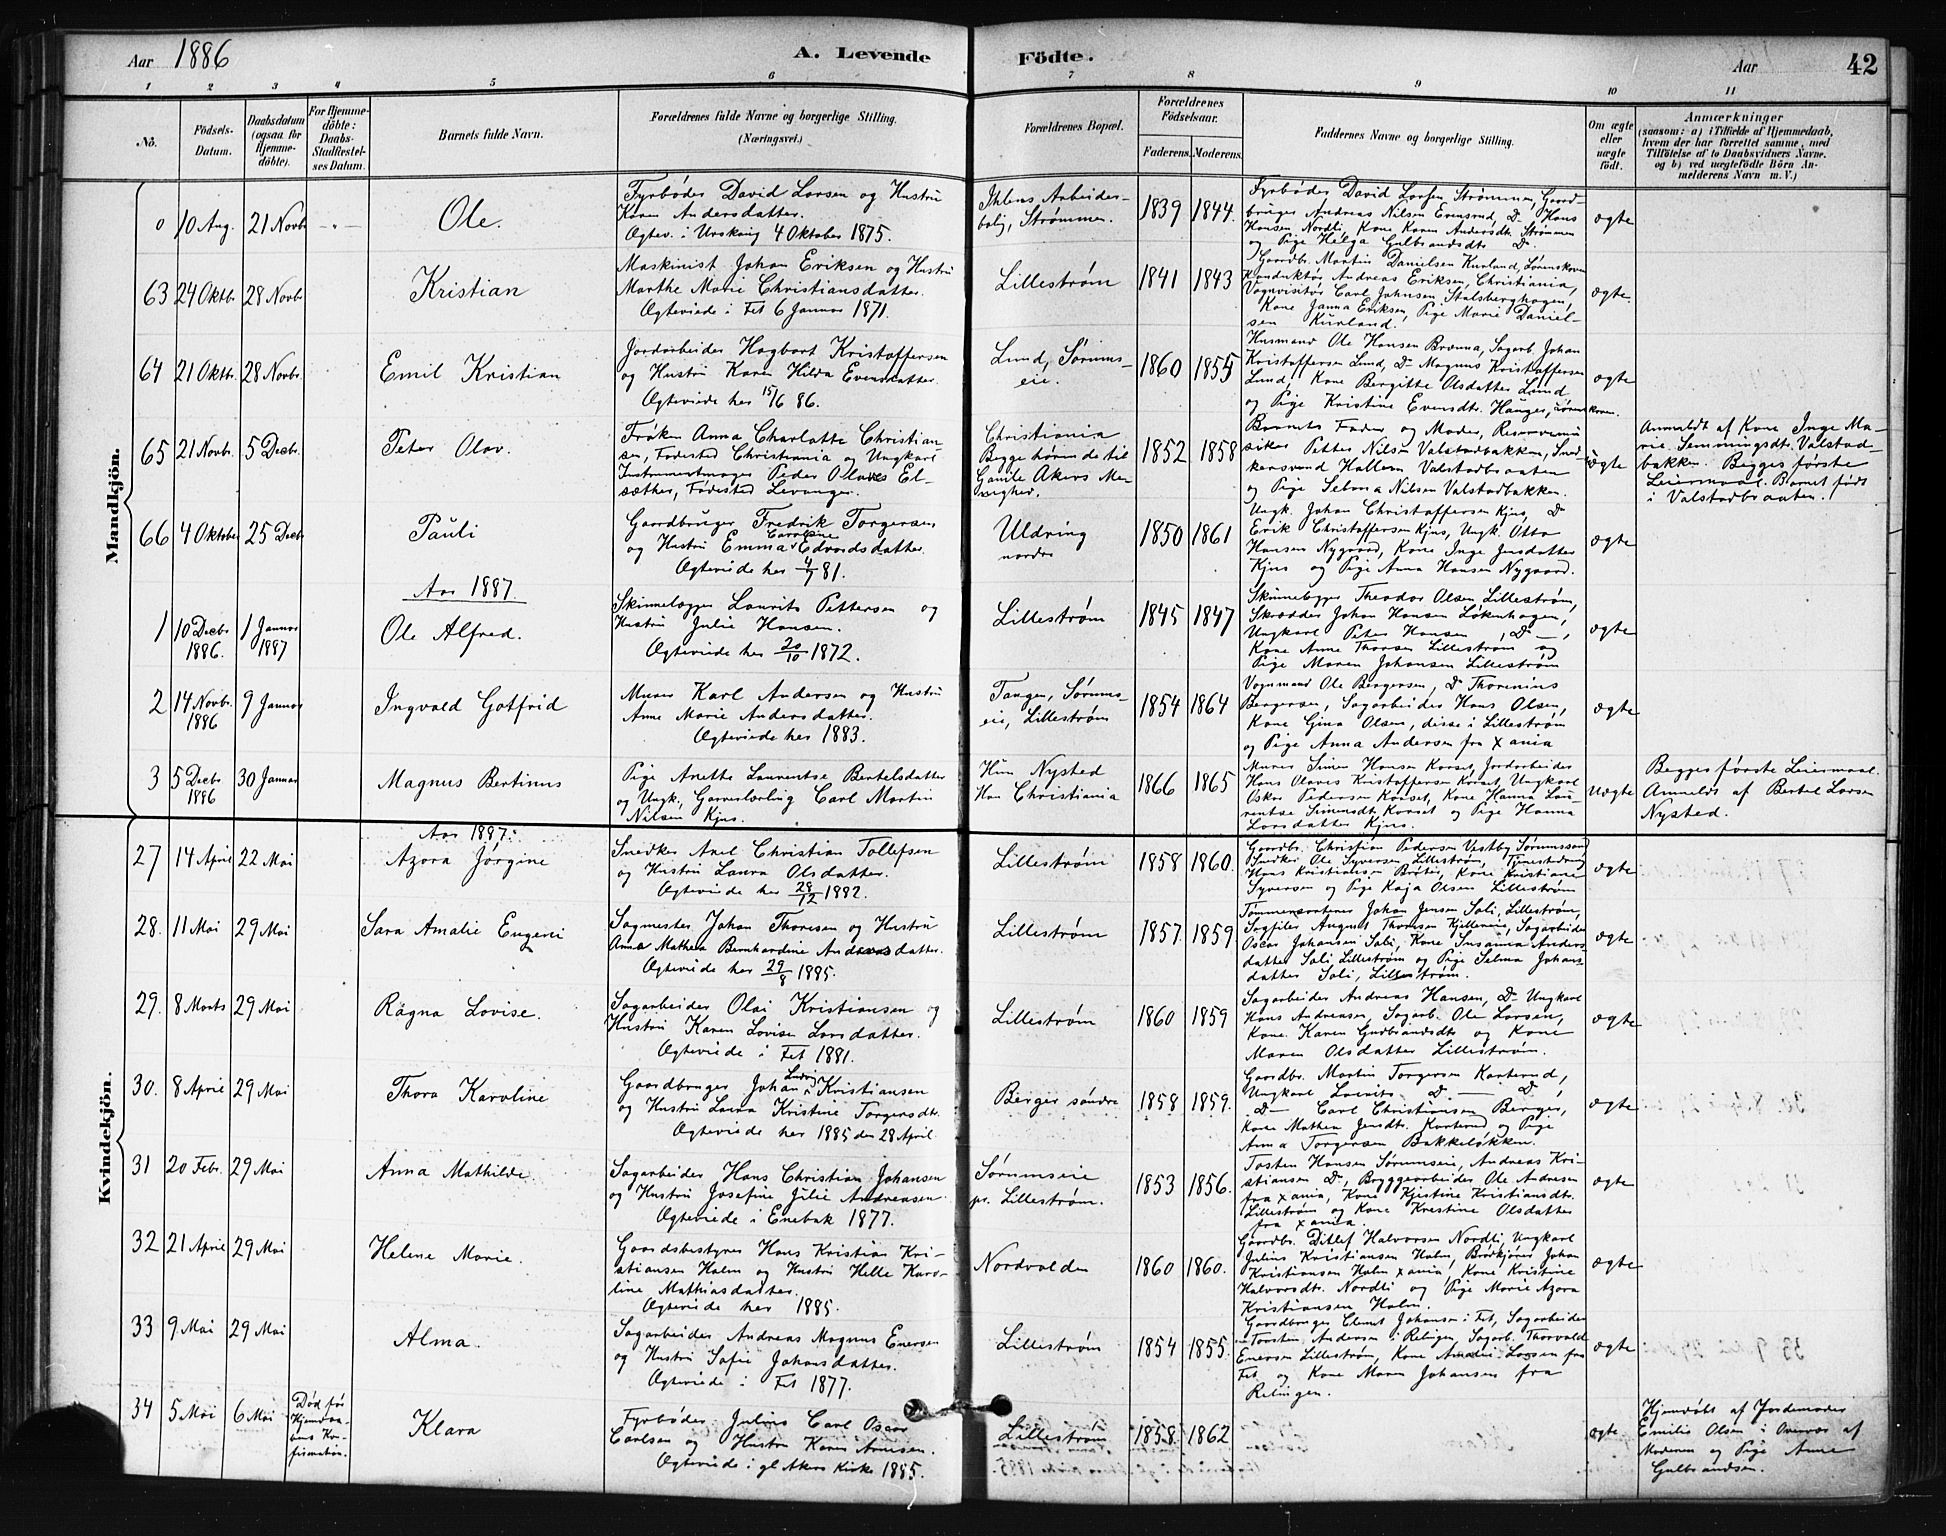 Aar 1886
A. Levende Födte.
Aar 42
1 2 3 4 5 6 7 8 9 10 11
No.
Födsels-Datum.
Daabsdatum (ogsaa for Hjemme-döbte).
For Hjemme-döbte: Daabs-Stadfæstel-ses Datum.
Barnets fulde Navn.
Forældrenes fulde Navne og borgerlige Stilling. (Næringsvei.)
Forældrenes Bopæl.
Forældrenes Födselsaar.
Faderens. Moderens.
Faddernes Navne og borgerlige Stilling.
Om ægte eller uægte födt.
Anmærkninger
(saasom: a) i Tilfælde af Hjemmedaab, hvem der har forrettet samme, med Tilföielse af to Daabsvidners Navne. og b) ved uægtefödte Börn An-melderens Navn m. V.)
Mandkjön.
0 10 Aug. 21 Novb. -"- Ole.
Fyrbøder David Larsen og Hustru
Karen Andersdatter.
Ægtev. i Urskoug 4 Oktober 1875.
Ihlens Arbeider-
bolig, Strømmen.
1839 1844.
Fyrbøder David Larsen Strømmen, Gaard-
bruger Andreas Nilsen Evensrud, Do Hans
Hansen Nordli, Kone Karen Andersdt. Strømmen
og Pige Helga Gulbrandsdt. Do.
ægte
63 24 Oktbr. 28 Novbr. Kristian
Maskinist Johan Eriksen og Hustru
Marthe Marie Christiansdatter.
Ægteviede i Fet 6 Januar 1871.
Lillestrøm
1841 1843
Gaardbr. Martin Danielsen Kurland, Lørenskoven
Konduktør Andreas Eriksen, Christiania,
Vognvisitør Carl Johnsen, Stalsberghagen,
Kone Janna Eriksen, Pige Marie Daniel-
sen Kurland.
ægte.
64 21 Oktbr. 28 Novbr. Emil Kristian
Jordarbeider Hagbart Kristoffersen
og Hustru Karen Hilda Evensdatter.
Ægteviede her 15/6 86.
Lund, Sørums-
eie.
1860 1855
Husmand Ole Hansen Brænna, Sagarb. Johan
Kristoffersen Lund, Do Magnus Kristoffersen
Lund, Kone Bergitte Olsdatter Lund
og Pige Kristine Evensdt. Hauger, Lørenskoven.
ægte
65 21 Novbr. 5 Decbr. Peter Olav.
Frøken Anna Charlotte Christian-
sen, Fødested Christiania og Ungkarl
Instrumentmager Peder Olaves El-
sæther, Fødested Levanger.
Christiania
Begge hørende til
Gamle Akers Me-
nighed.
1852 1858
Barnets Fader og Moder, Reservemu-
siker Petter Nilsen Valstadbakken, Snedkersvend Hallum Valstadbraaten
og Pige Selma Nilsen Valstadbakken.
uægte
Anmeldt af Kone Inge Ma-
rie Semmingsdt. Valstad-
bakken. Begges første
Leiermaal. Barnet født
i Valstadbraaten.
66 4 Oktober 25 Decbr. Pauli
Gaardbruger Fredrik Torgersen
og Hustru Emma Caroline Edvardsdatter.
Ægteviede her 4/7 81.
Uldring
nordre
1850 1861
Ungk. Johan Christoffersen Kjus, Do
Erik Christoffersen Kjus, Ungk. Otto
Hansen Nygaard, Kone Inge Jensdatter
Kjus og Pige Anna Hansen Nygaard.
ægte
Aar 1887.
1 10 Decbr. 1886. 1 Januar 1887 Ole Alfred.
Skinnelægger Laurits Pettersen og
Hustru Julie Hansen.
Ægteviede her 20/10 1872.
Lillestrøm
1845 1847
Skinnelægger Theodor Olsen Lillestrøm,
Skrædder Johan Hansen Løkenhagen,
Ungkarl Peter Hansen, Do —,
Kone Anne Thorsen Lillestrøm og
Pige Maren Johansen Lillestrøm
ægte
2 14 Novbr. 1886 9 Januar Ingvald Gotfrid
Murer Karl Andersen og Hustru
Anne Marie Andersdatter.
Ægteviede her 1883.
Tangen, Sørums-
eie, Lillestrøm
1854 1864
Vognmand Ole Bergersen, Do Thorenius
Bergersen, Sagarbeider Hans Olsen,
Kone Gina Olsen, disse i Lillestrøm
og Pige Anna Andersen fra Xania
ægte
3 5 Decbr. 1886 30 Januar Magnus Bertinus
Pige Anette Laurentse Bertelsdatter
og Ungk. Garverlærling Carl Martin
Nilsen Kjus.
Hun Nysted
Han Christiania
1866 1865
Murer Simen Hansen Korset, Jordarbeider
Hans Olaves Kristoffersen Korset, Ungkarl
Oskar Pedersen Korset, Kone Hanna Lau-
rentse Simensdt. Korset og Pige Hanna
Larsdatter Kjus.
uægte
Begges første Leiermaal.
Anmeldt af Bertel Larsen
Nysted.
Kvindekjön.
Aar 1887.
27 14 April 22 Mai Azora Jörgine
Snedker Axel Christian Tollefsen
og Hustru Laura Olsdatter.
Ægteviede her 28/12 1882.
Lillestrøm
1858 1860.
Gaardbr. Christian Pedersen Vestby Sørumssand
Snedker Ole Syversen Lillestrøm,
Hans Kristiansen Bråten, Kone Kristiane
Syversen og Pige Kaja Olsen Lillestrøm
ægte
28. 11 Mai 29 Mai Sara Amalie Eugeni
Sagmester Johan Thoresen og Hustru
Anna Mathea Bernhardine Andersdatter.
Ægteviede her 29/8 1885.
Lillestrøm
1857 1859
Tømmersorterer Johan Jensen Soli, Lillestrøm,
Sagfiler August Thomsen Kjellereie, Sagarbeider
Oscar Johansen Soli, Kone Susanna Anders-
datter Soli Lillestrøm og Pige Selma Johans-
datter Soli, Lillestrøm.
ægte
29. 8 Marts 29 Mai Ragna Lovise.
Sagarbeider Olai Kristiansen og
Hustru Karen Lovise Larsdatter.
Ægteviede i Fet 1881.
Lillestrøm
1860 1859
Sagarbeider Andreas Hansen, Do Ungkarl
Hans Andreasen, Sagarb. Ole Larsen,
Kone Karen Gudbrandsdtr og Kone
Maren Olsdatter Lillestrøm.
ægte
30. 8 April 29 Mai Thora Karoline
Gaardbruger Johan Ludvig Kristiansen
og Hustru Laura Kristine Torgersdt.
Ægteviede her 1885 den 28 April.
Berger söndre
1858 1859.
Gaardbr. Martin Torgersen Karterud,
Ungkarl Laurits Do — Do,
Do — Carl Christiansen Berger,
Kone Mathea Jensdt. Karterud og Pige
Anna Torgersen Bakkeløkken.
ægte
31 20 Febr. 29 Mai Anna Mathilde.
Sagarbeider Hans Christian Johansen
og Hustru Josefine Julie Andreasen
Ægteviede i Enebak 1877.
Sørumseie
pr. Lillestrøm.
1853 1856.
Tosten Hansen Sørumseie, Andreas Kri-
stiansen Do, Bryggearbeider Ole Andresen
fra Xania, Kone Kjestine Kristiansdt.
Lillestrøm og Kone Kristine Olsdatter
fra Xania.
ægte
32 21 April 29 Mai Helene Marie.
Gaardsbestyrer Hans Kristian Kri-
stiansen Holm og Hustru Helle Karo-
line Mathiasdatter.
Ægteviede her 1885.
Nordvolden
1860 1860.
Gaardbr. Ditlef Halvorsen Nordli, Ungkarl
Julius Kristiansen Holm, Brødkjører Johan
Kristiansen Holm Xania, Kone Kristine
Halvorsdt. Nordli og Pige Marie Azora
Kristiansen Holm.
ægte
33 9 Mai 29 Mai Alma.
Sagarbeider Andreas Magnus Enersen
og Hustru Sofie Johansdatter.
Ægteviede i Fet 1877.
Lillestrøm
1854 1855.
Gaardbruger Clemet Johansen i Fet, Sagarbeider
Torsten Andersen i Relingen, Sagarb. Thorvald
Enersen Lillestrøm, Kone Amalie Larsen fra
Fet og Kone Maren Johansen fra
Relingen.
ægte
34 5 Mai 6 Mai Død før Klara
Fyrbøder Julius Carl Oscar
Carlsen og Hustru Karen Arnesen.
Ægteviede i gl. Akers Kirke 1885.
Lillestrøm
1858 1862
ægte
Hjemdøbt af Jordemoder
Emilie Olsen i Overvær af
Moderen og Pige Anne
Gulbrandsen.